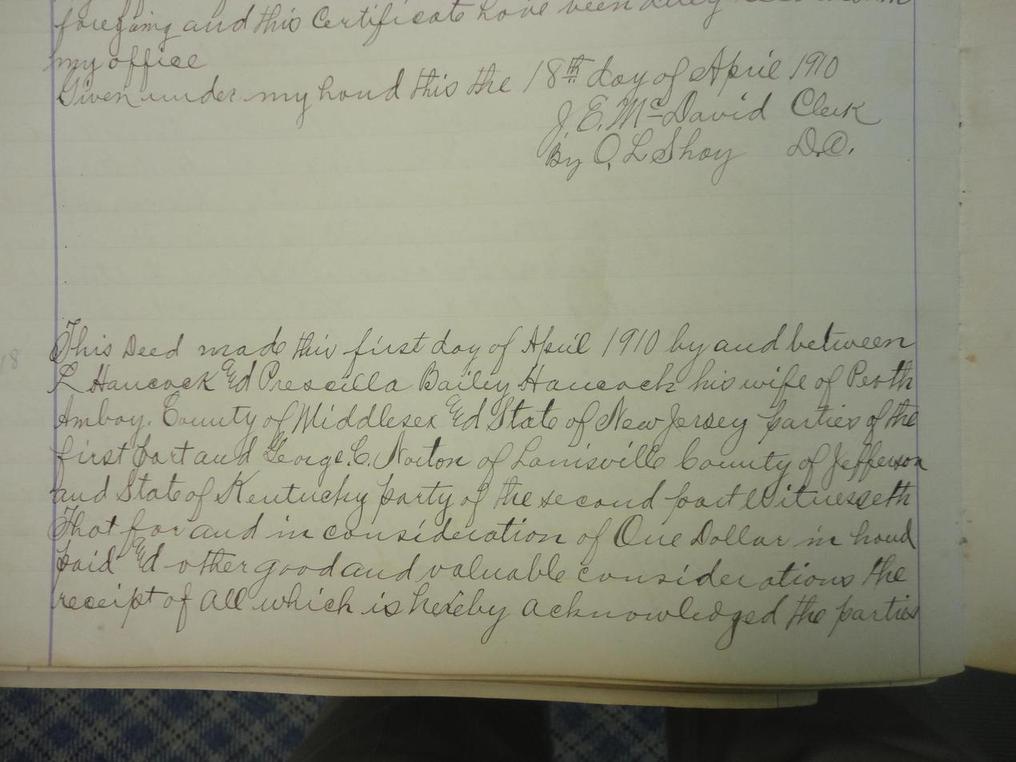 foregoing and this Certificate have been duly
my office
Given under my hand this the 18th day of April 1910
J. E. McDavid Clerk
By O. L. Shoy D.C.
This Deed made this first day of April 1910 by and between
L Hancock &d Prescilla Bailey Hancock his wife of Perth
Amboy. County of Middlesex &d State of New Jersey parties of the
first part and George. C. Norton of Louisville County of Jefferson
and State of Kentucky party of the second part Witnesseth
That for and in consideration of One Dollar in hand
paid &d other good and valuable considerations the
receipt of all which is hereby acknowledged the parties